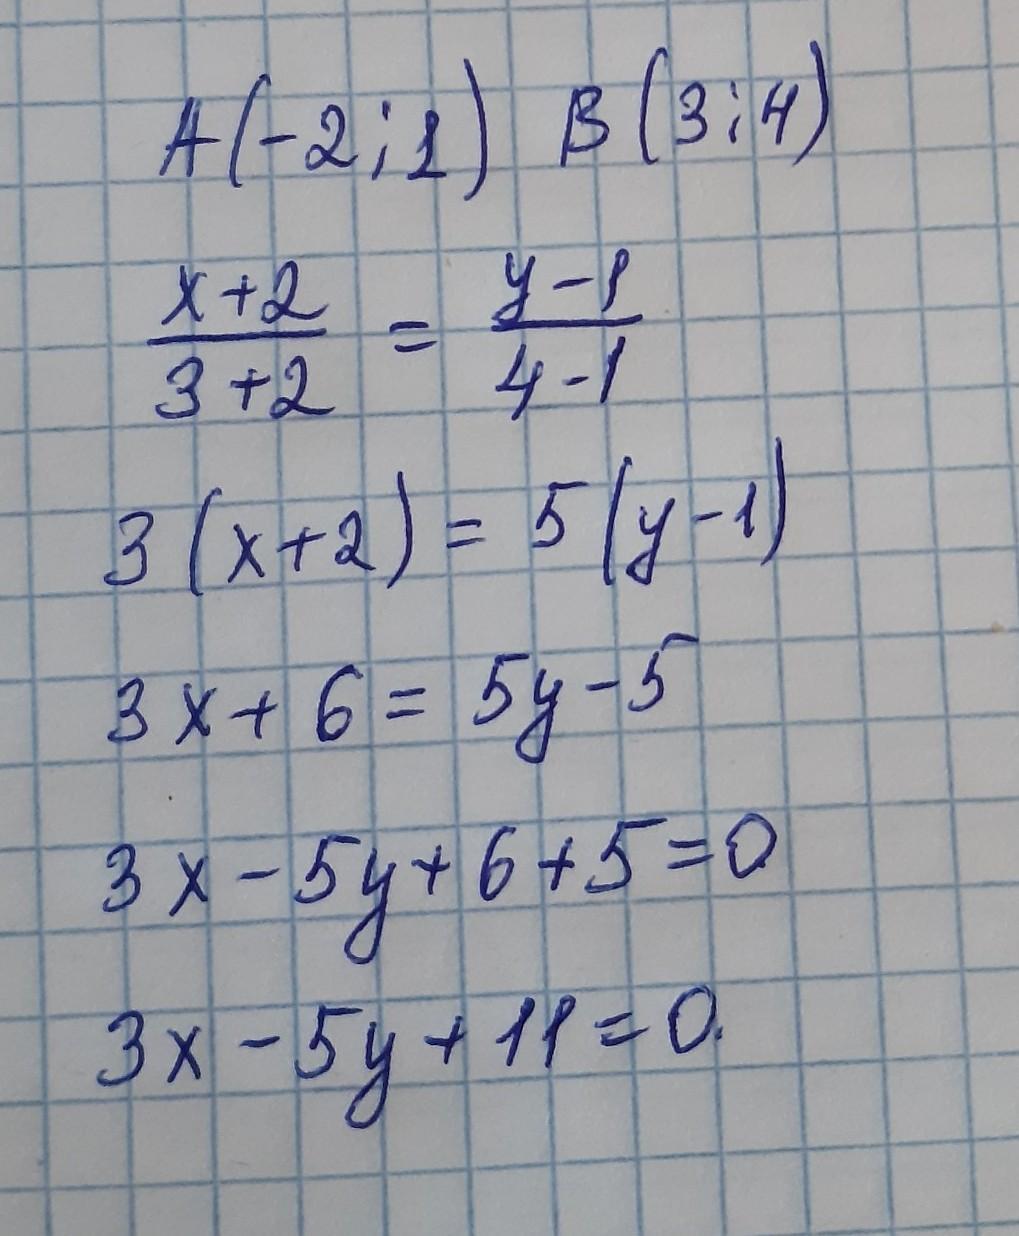 A(-2;1) B(3;4)
x+2/3+2 = y-1/4-1
3(x+2) = 5(y-1)
3x+6 = 5y-5
3x-5y+6+5=0
3x-5y+11=0.